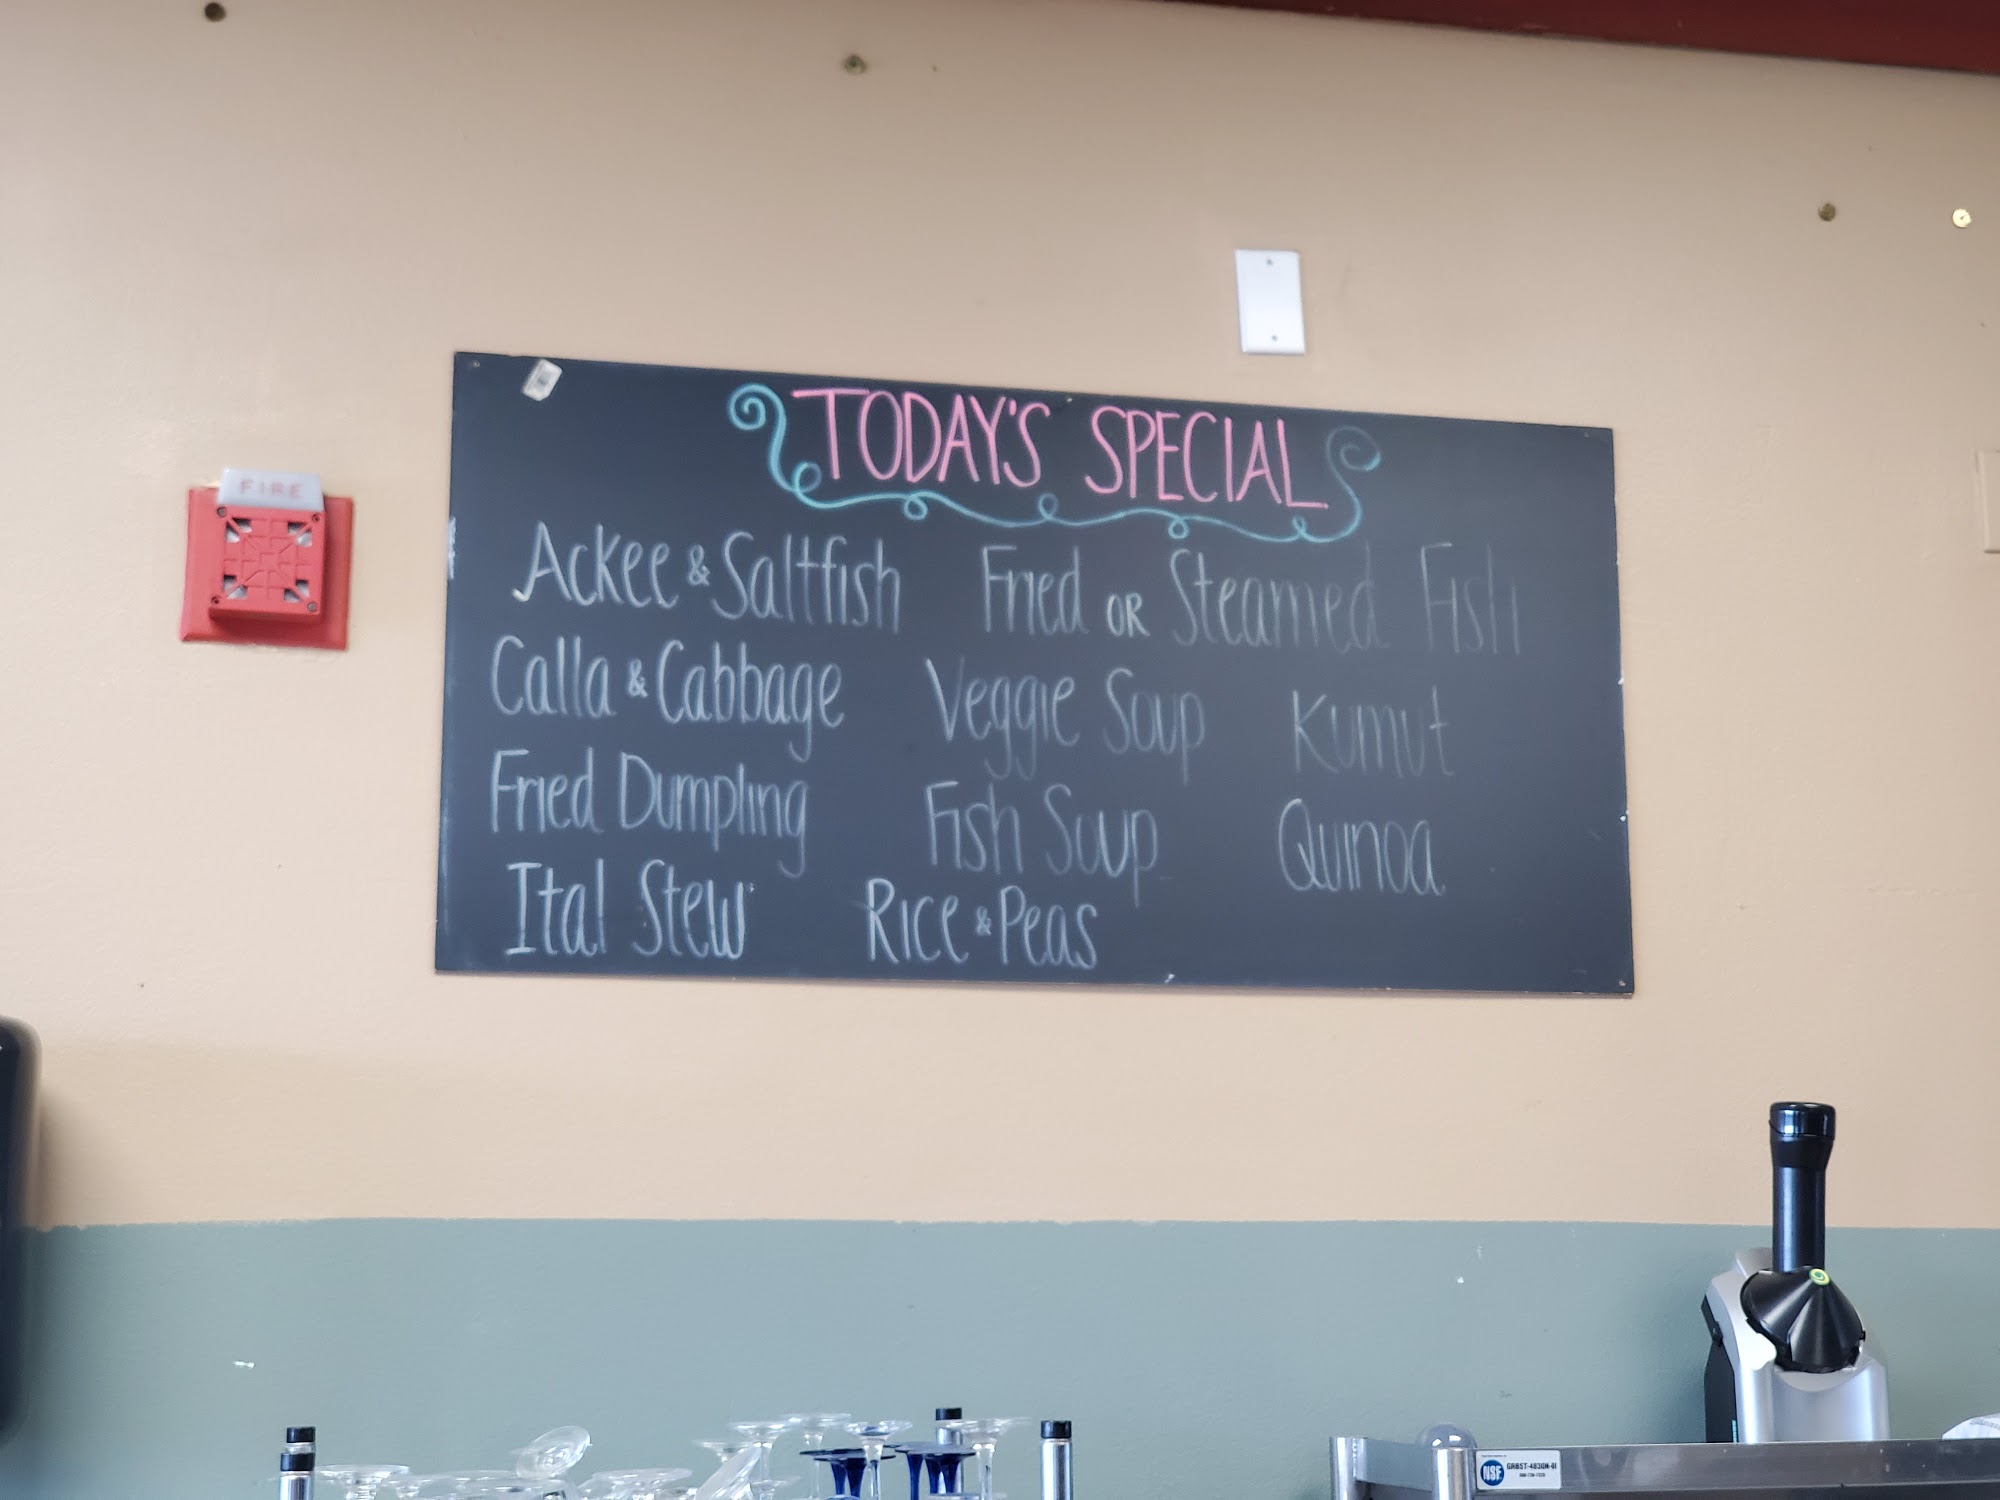 TODAY'S SPECIAL
FIRE
Ackee & Saltfish Fried OR Steamed Fish
Calla & Cabbage Veggie Soup Kumut
Fried Dumpling Fish Soup Quinoa
Ital Stew Rice & Peas
NSF GRBST-4830N-GI